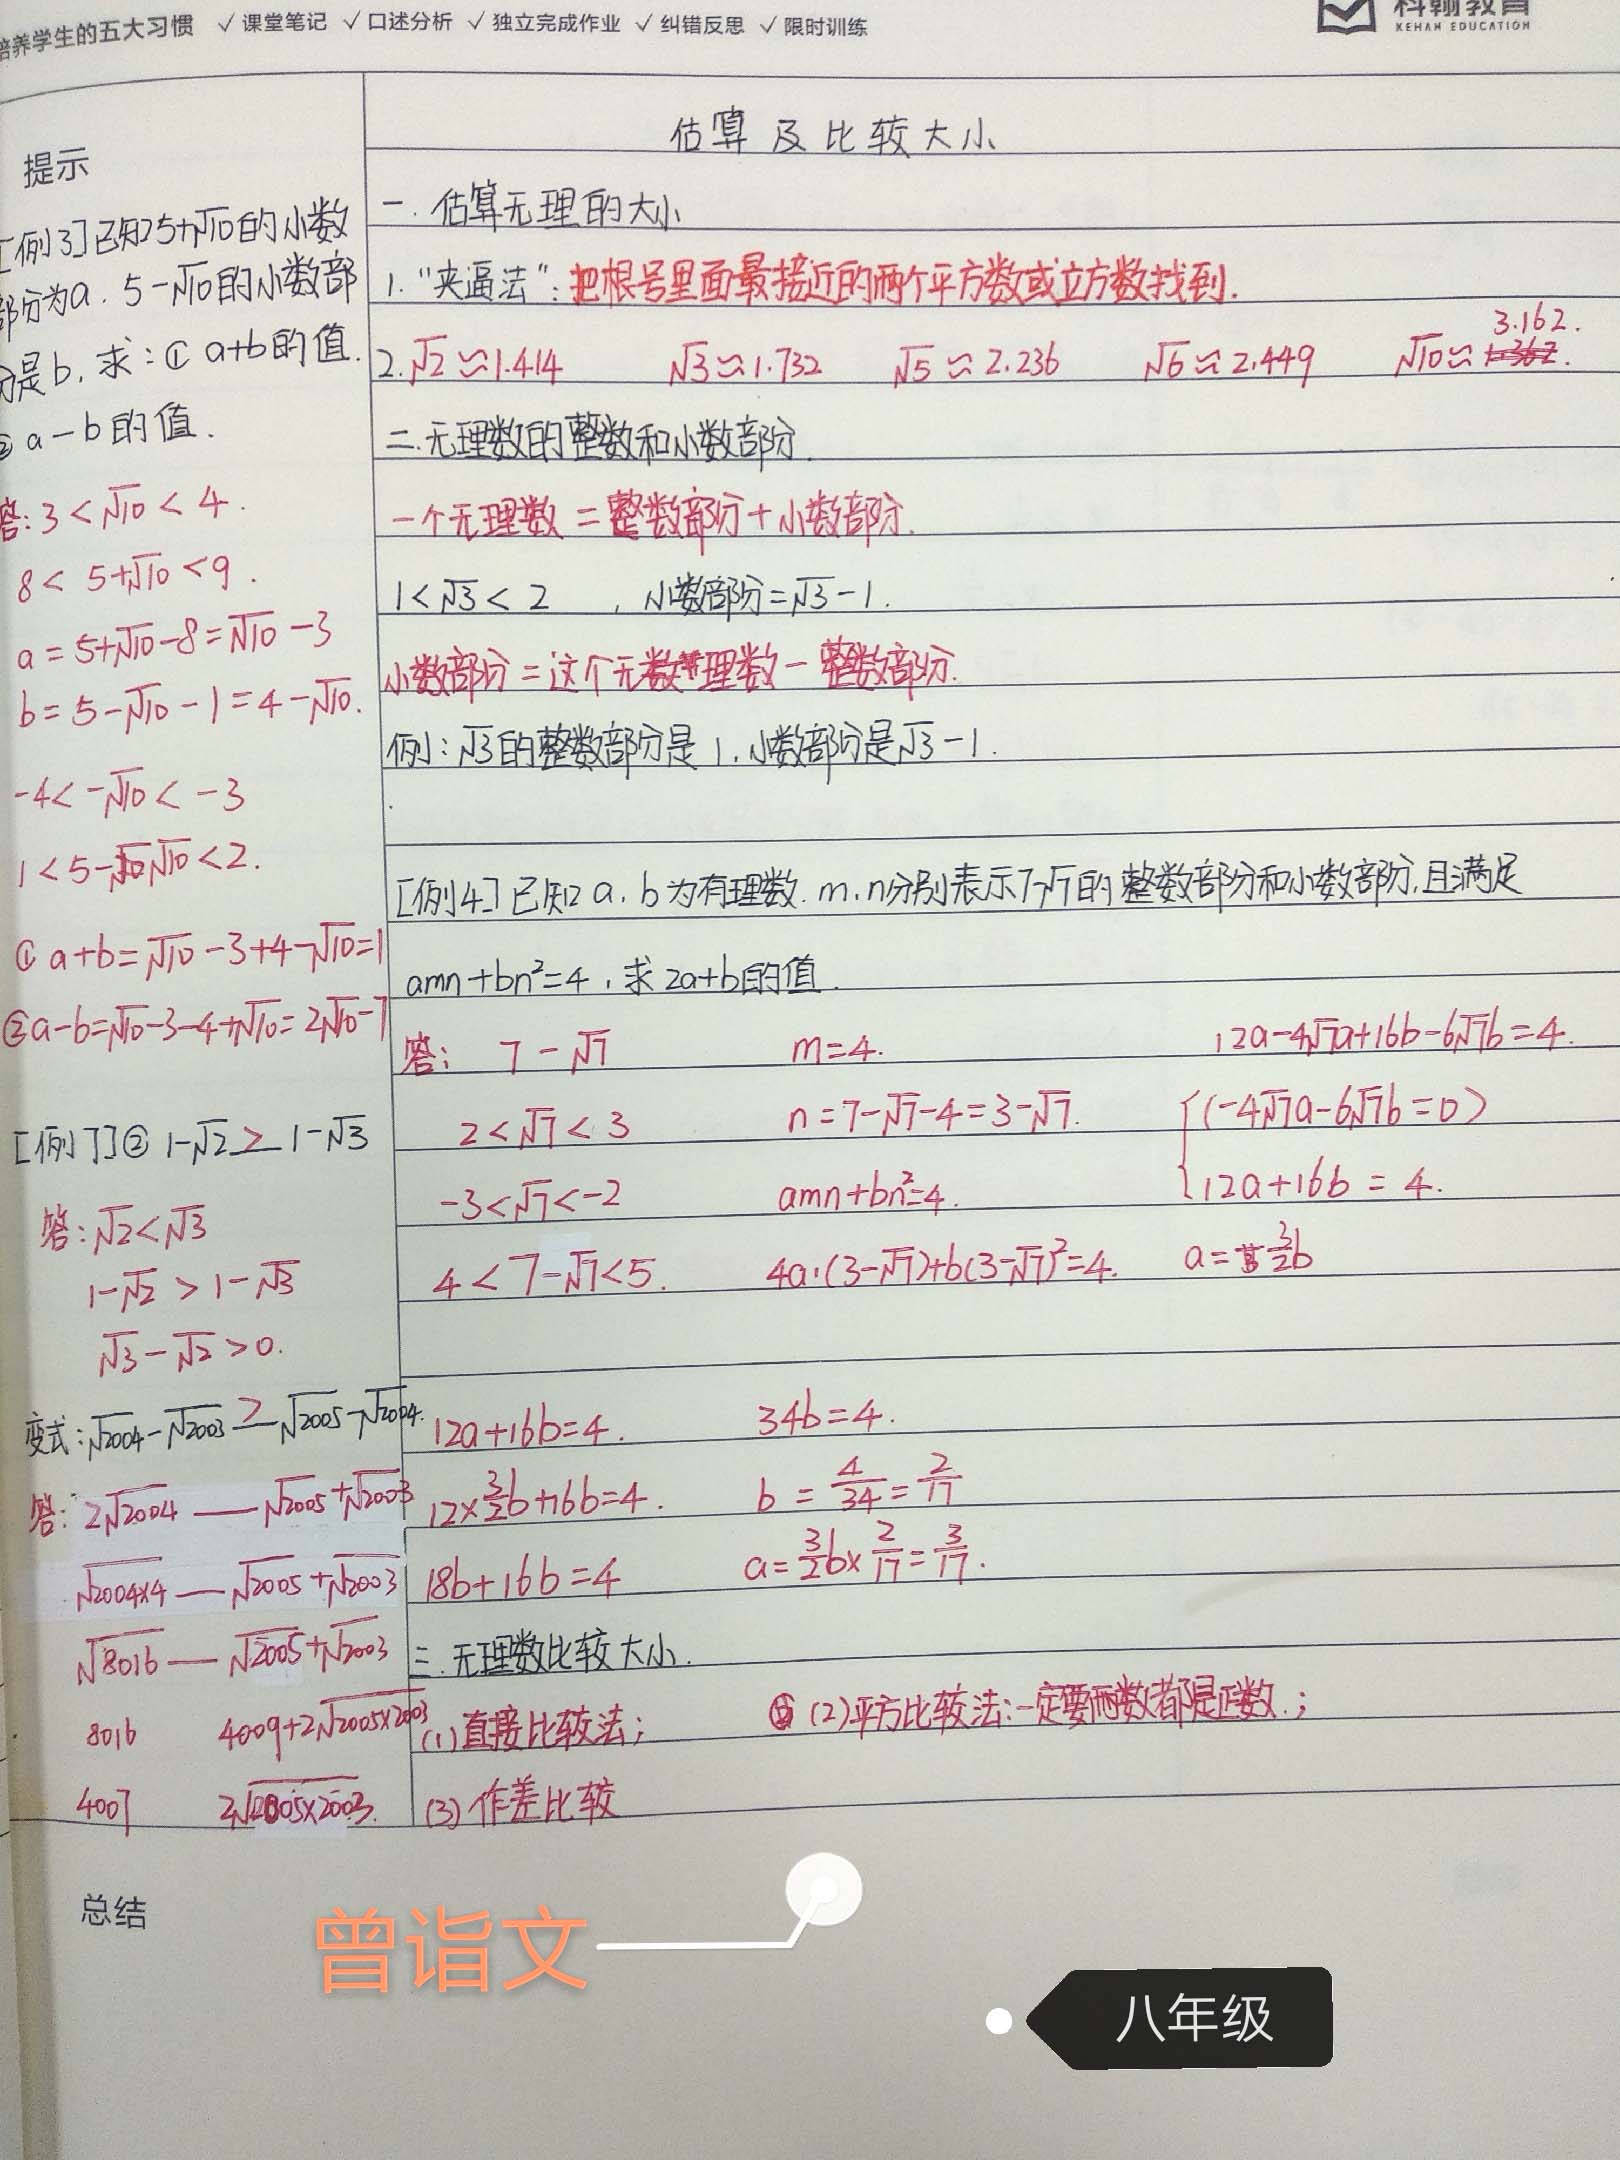 培养学生的五大习惯 √课堂笔记 √口述分析 √独立完成作业 √纠错反思 √限时训练
科翰教育
KEHAN EDUCATION
提示
[例3]已知5+√10的小数
部分为a.5-√10的小数部
分是b,求:① a+b的值.
② a-b的值.
答:3<√10<4.
8<5+√10<9.
a=5+√10-8=√10-3
b=5-√10-1=4-√10.
-4<-√10<-3
1<5-√10<2.
① a+b=√10-3+4-√10=1
②a-b=√10-3-4+√10=2√10-7
[例7]② 1-√2 > 1-√3
答:√2<√3
1-√2>1-√3
√3-√2>0.
变式:√2004-√2003 > √2005-√2004.
答:2√2004 — √2005+√2003
√2004×4 — √2005+√2003
√8016 — √2005+√2003
8016 4009+2√2005×2003
4007 2√2005×2003.
估算及比较大小
一.估算无理的大小
1.“夹逼法”:把根号里面最接近的两个平方数或立方数找到.
2.√2≈1.414 √3≈1.732 √5≈2.236 √6≈2.449 √10≈3.162.
二.无理数的整数和小数部分.
一个无理数=整数部分+小数部分.
1<√3<2 ,小数部分=√3-1.
小数部分=这个无理数-整数部分.
例:√3的整数部分是1,小数部分是√3-1.
[例4]已知a,b为有理数.m,n分别表示7-√7的整数部分和小数部分,且满足
amn+bn²=4,求2a+b的值.
答: 7-√7 m=4. 12a-4√7a+16b-6√7b=4.
2<√7<3 n=7-√7-4=3-√7. {(-4√7a-6√7b=0)
-3<√7<-2 amn+bn²=4. 12a+16b=4.
4<7-√7<5. 4a·(3-√7)+b(3-√7)²=4. a=3/2b
12a+16b=4. 34b=4.
12×3/2b+16b=4. b=4/34=2/17
18b+16b=4 a=3/2b×2/17=3/17.
三.无理数比较大小.
(1)直接比较法; (2)平方比较法:一定要两数都是正数.;
(3)作差比较
总结
曾诣文
八年级